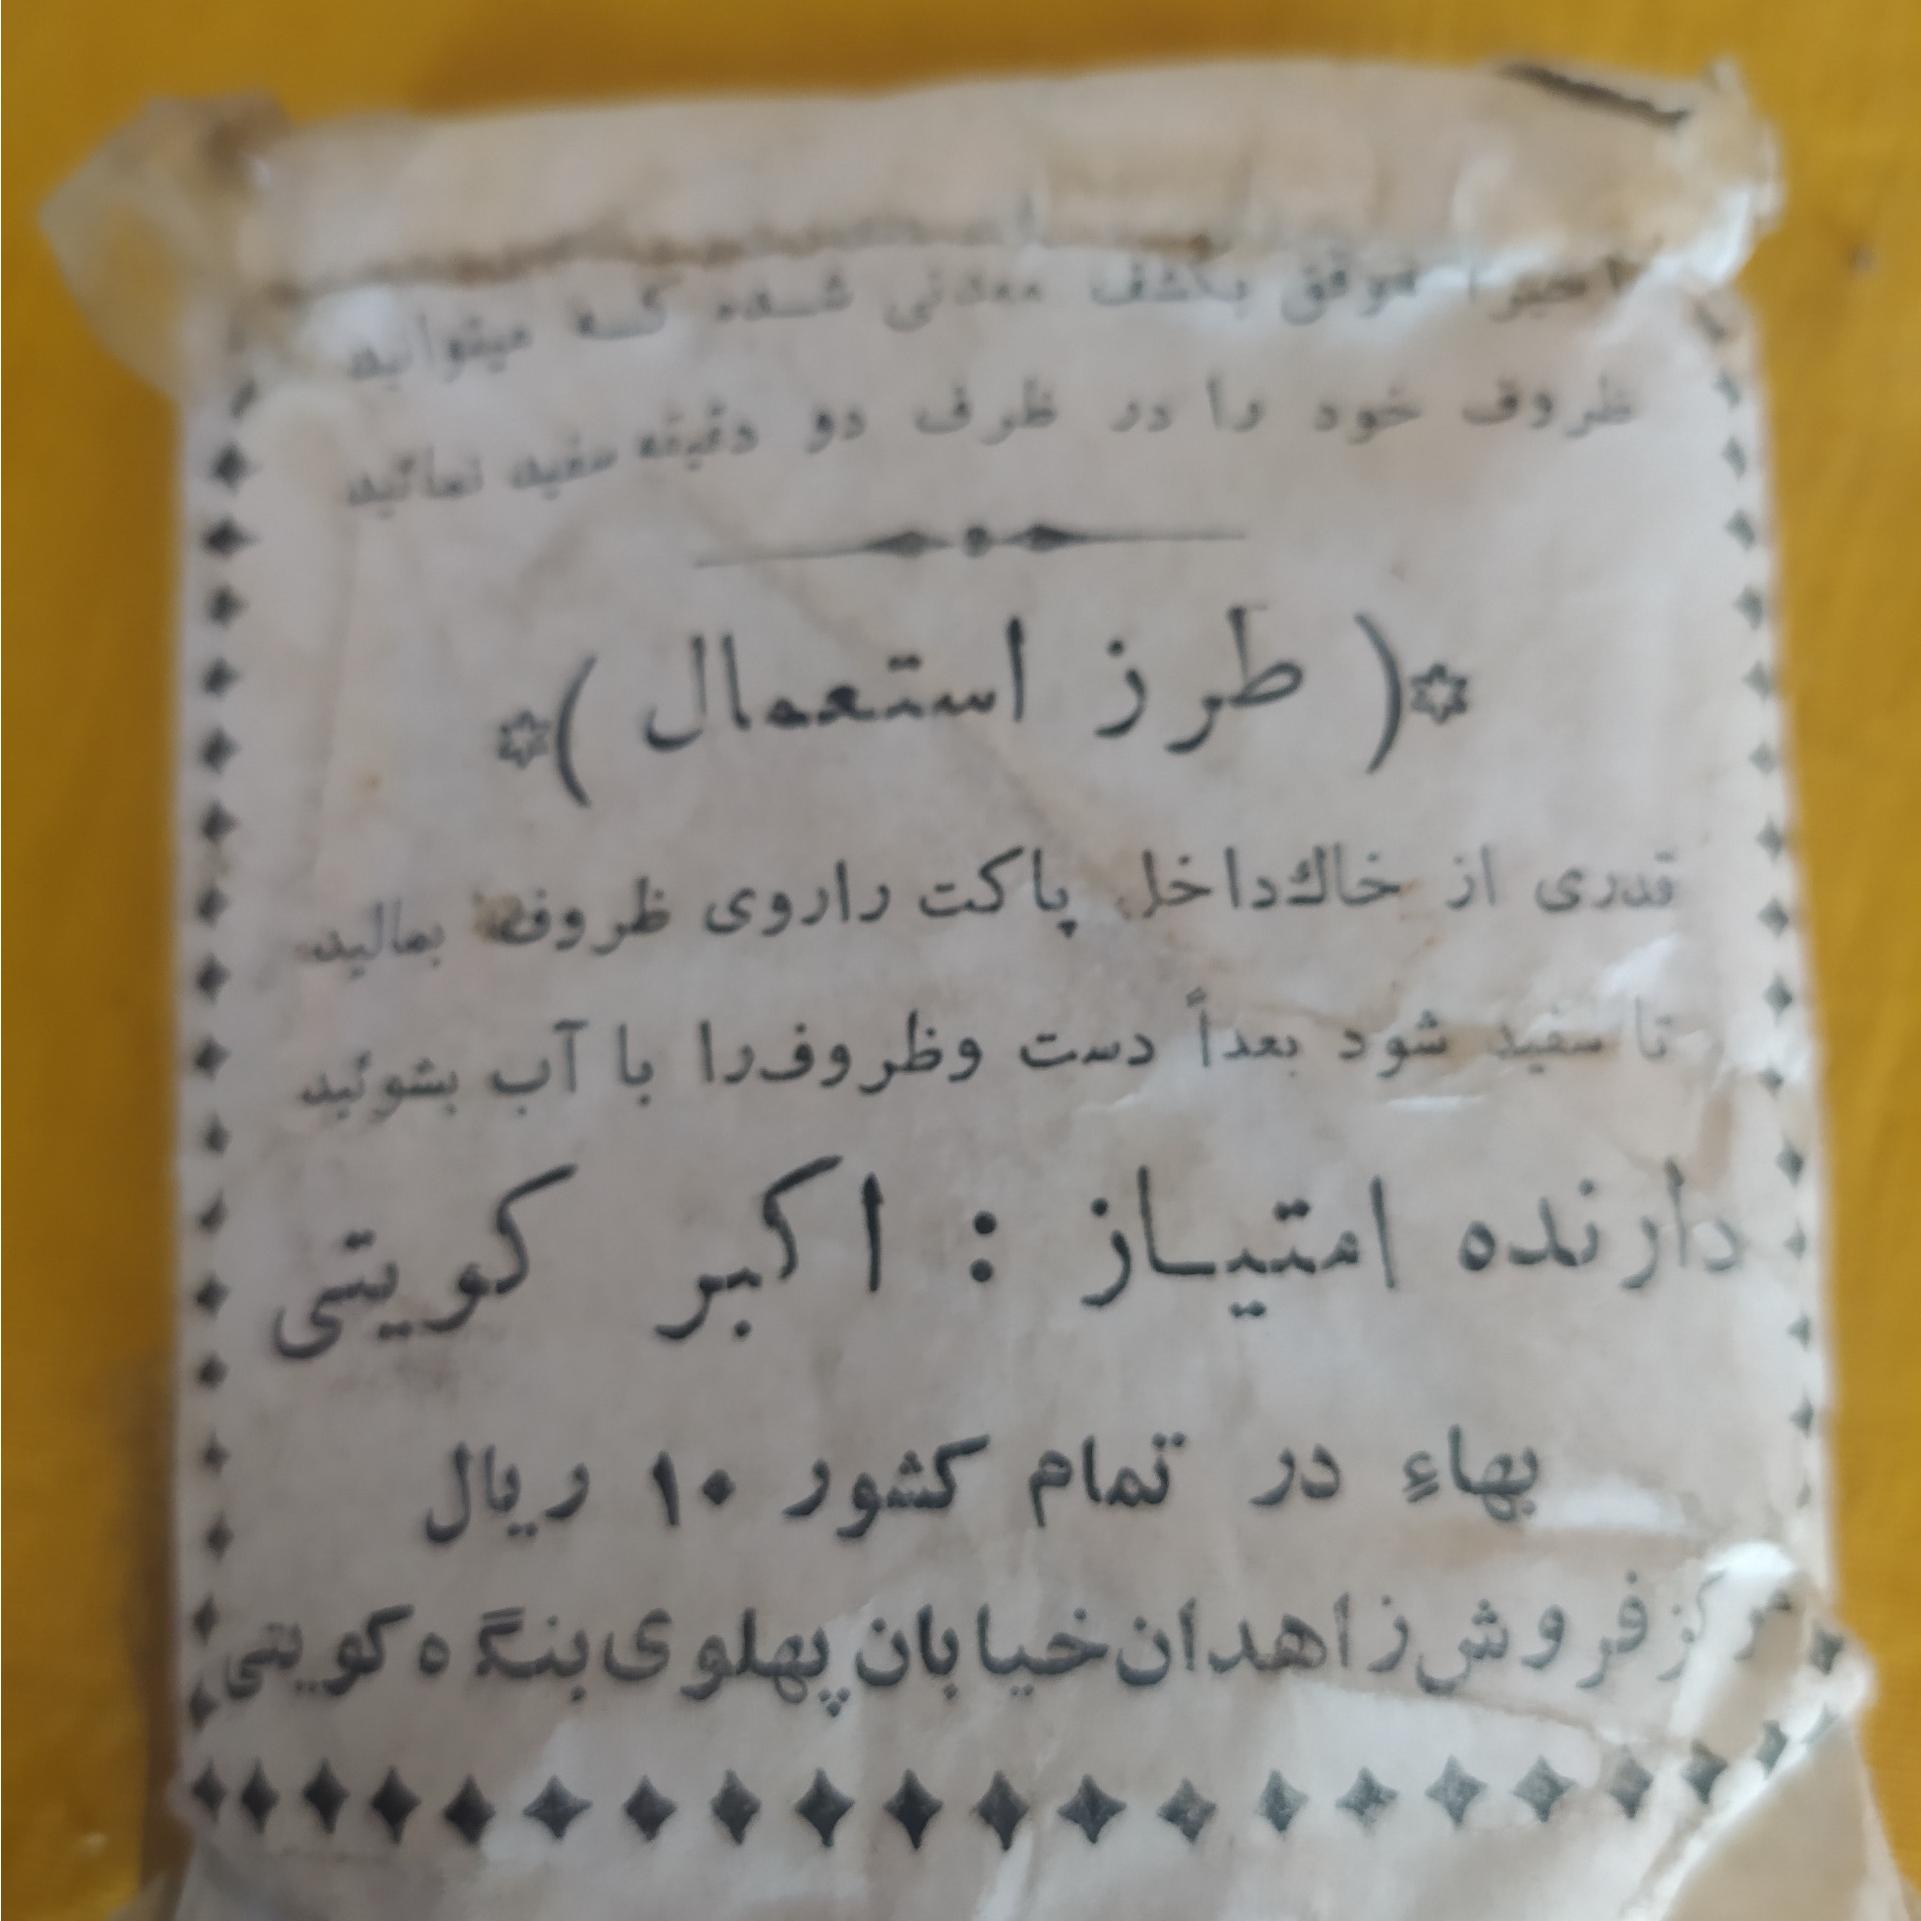 اخیراً موفق بکشف معدنی شده که میتوانید
ظروف خود را در ظرف دو دقیقه سفید نمائید
( طرز استعمال )
قدری از خاك داخل پاکت راروی ظروف بمالید
تا سفید شود بعداً دست وظروف‌را با آب بشوئید
دارنده امتیـاز : اکبر کویتی
بهاءِ در تمام کشور ۱۰ ریال
مرکز فروش زاهدان خیابان پهلوی بنگاه کویتی